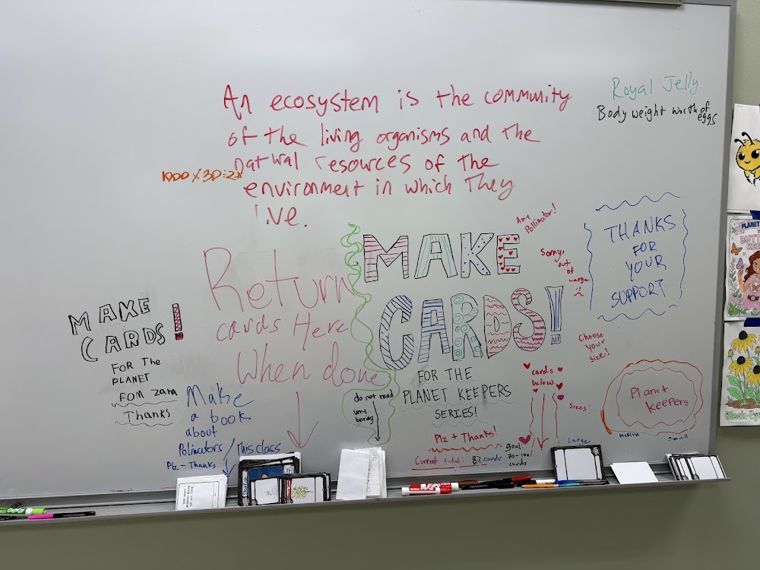 An ecosystem is the community
of the living organisms and the
natural resources of the
environment in which they
live.
Royal Jelly
Body weight worth of
eggs
Any
Pollinator!
MAKE
CARDS!
FOR THE
PLANET KEEPERS
SERIES!
Plz + Thanks!
Sorry,
out
of
large
THANKS
FOR
YOUR
SUPPORT
Return
cards Here
When done
MAKE
CARDS!
FOR THE
PLANET
Thanks
Make
a book
about
Pollinators/This class
Plz - Thanks
do not read
very
boring
cards
below
Choose
your
size!
Sizes:
Large
Medium
Small
Planet
Keepers
Current total: 82 cards
goal:
cards
PLANET